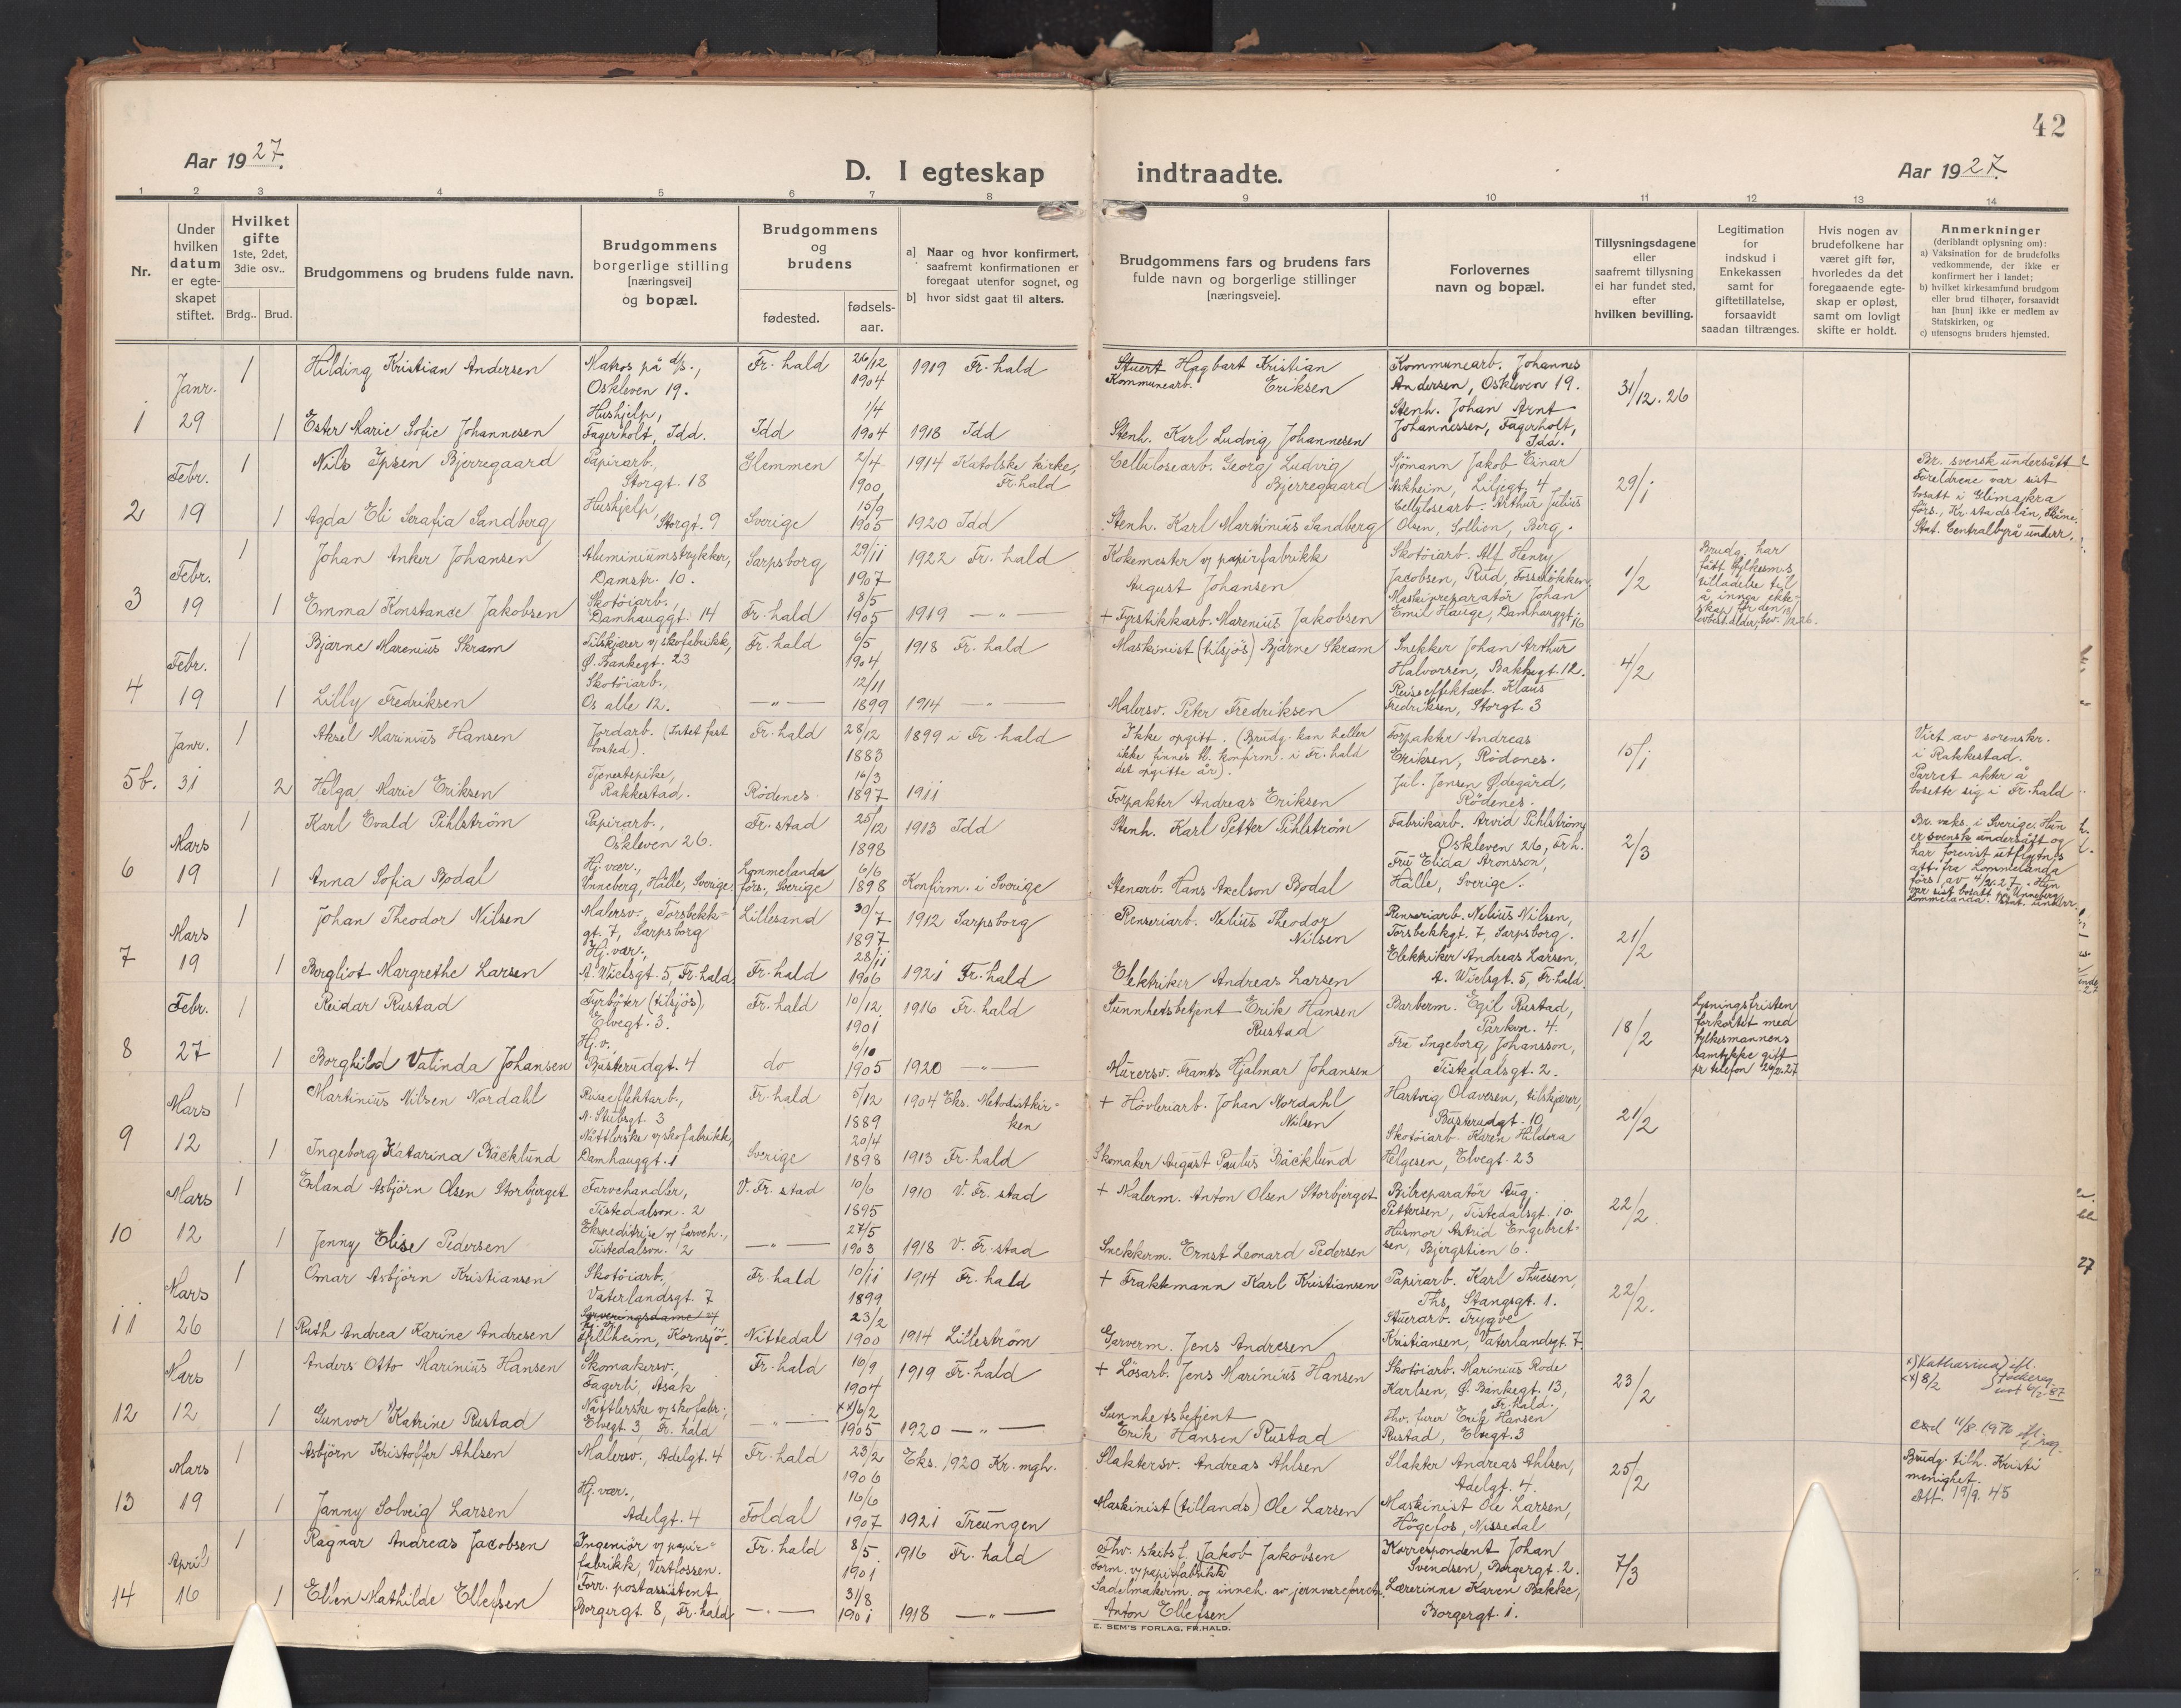 42
Aar 1927.
D. I egteskap indtraadte.
Aar 1927.
1 2 3 4 5 6 7 8 9 10 11 12 13 14
Nr.
Under hvilken datum er egte-skapet stiftet.
Hvilket gifte 1ste, 2det, 3die osv..
Brdg.. Brud.
Brudgommens og brudens fulde navn.
Brudgommens borgerlige stilling [næringsvei] og bopæl.
Brudgommens og brudens
fødested.
fødsels-aar.
a] Naar og hvor konfirmert, saafremt konfirmationen er foregaat utenfor sognet, og
b] hvor sidst gaat til alters.
Brudgommens fars og brudens fars fulde navn og borgerlige stillinger [næringsveie].
Forlovernes navn og bopæl.
Tillysningsdagene eller saafremt tillysning ei har fundet sted, efter hvilken bevilling.
Legitimation for indskud i Enkekassen samt for giftetillatelse, forsaavidt saadan tiltrænges.
Hvis nogen av brudefolkene har været gift før, hvorledes da det foregaaende egte-skap er opløst, samt om lovligt skifte er holdt.
Anmerkninger (deriblandt oplysning om):
a) Vaksination for de brudefolks vedkommende, der ikke er konfirmert her i landet;
b) hvilket kirkesamfund brudgom eller brud tilhører, forsaavidt han [hun] ikke er medlem av Statskirken, og
c) utensogns bruders hjemsted.
1 Janr. 29
1 Hilding Kristian Andersen Matros på d/s., Oskleven 19. Fr.hald 26/12 1904 1919 Fr.hald
Stuert Kommunearb. Hagbart Kristian Eriksen
Kommunearb. Johannes Andersen, Oskleven 19.
31/12.26
1 Ester Marie Sofie Johannesen Hushjelp, Fagerholt, Idd. Idd 1/4 1904 1918 Idd
Stenh. Karl Ludvig Johannesen
Stenh. Johan Arnt Johannessen, Fagerholt, Idd.
2 Febr. 19
1 Nils Ipsen Bjerregaard Papirarb., Storgt. 18 Glemmen 2/4 1900 1914 Katolske kirke, Fr.hald
Cellulosearb. Georg Ludvig Bjerregaard
Sjömann Jakob Einar Askheim, Liljegt. 4
29/1
Br. svensk undersått Foreldrene var sist bosatt i Glimåkra förs., Kr.stads län, Skåne. Stat. Centralbyrå underr.
1 Agda Eli Serafia Sandberg Hushjelp, Storgt. 9 Sverige 15/9 1905 1920 Idd
Stenh. Karl Martinius Sandberg
Cellulosearb. Arthur Julius Olsen, Sollien, Berg.
3 Febr. 19
1 Johan Anker Johansen Aluminiumstrykker, Damstr. 10. Sarpsborg 29/11 1907 1922 Fr.hald
Kokemester v/ papirfabrikk August Johansen
Skotöiarb. Alf Henry Jacobsen, Rud, Fosseløkken
1/2
Brudg. har fått fylkesm.s tilladelse til å inngå ekteskap før den lovbest. alder, bev.
1 Emma Konstance Jakobsen Skotöiarb., Damhauggt. 14 Fr.hald 8/5 1905 1919 — " —
+ Fyrstikkarb. Marenius Jakobsen
Maskinreparatör Johan Emil Hauge, Damhauggt. 16
4 Febr. 19
1 Bjarne Marenius Skram Tilskjærer v/ skofabrikk, Ø. Bankegt. 23 Fr.hald 6/5 1904 1918 Fr.hald
Maskinist (tilsjös) Bjarne Skram
Snekker Johan Arthur Halvorsen, Bakkegt. 12.
4/2
1 Lilly Fredriksen Skotöiarb., Os alle 12. — " — 12/11 1899 1914 — " —
Malersv. Peter Fredriksen
Reiseeffektarb. Klaus Fredriksen, Storgt. 3
5b. Janr. 31
1 Aksel Marinius Hansen Jordarb. (Intet fast bosted). Fr.hald 28/12 1883 1899 i Fr.hald
Ikke opgitt. (Brudg. kan heller ikke finnes bl. konfirm. i Fr.hald det opgitte år).
Forpakter Andreas Eriksen, Rödenes.
15/1
Viet av sorenskr. i Rakkestad. Parret akter å bosette sig i Fr.hald
2 Helga Marie Eriksen Tjenestepike, Rakkestad. Rödenes 16/3 1897 1911
Forpakter Andreas Eriksen
Jul. Jensen Ødegård, Rödenes.
6 Mars 19
1 Karl Evald Pihlström Papirarb., Oskleven 26. Fr.stad 25/12 1898 1913 Idd
Stenh. Karl Petter Pihlström
Fabrikarb. Arvid Pihlström, Oskleven 26, Fr.h.
2/3
Br. vaks. i Sverige. Hun er svensk undersått og har forevist utflytn.s att. fra Lommelanda förs. av 4/2.27. Hun var sist bosatt på Unneberg Lommelanda. Stat. underr.
1 Anna Sofia Bodal Hj.vær., Unneberg, Hälle, Sverige. Lommelanda förs., Sverige 6/6 1898 Konfirm. i Sverige
Stenarb. Hans Axelson Bodal
Fru Elida Aronsson, Hälle, Sverige.
7 Mars 19
1 Johan Theodor Nilsen Malersv. Torsbekkgt. 7, Sarpsborg Lillesand 30/7 1897 1912 Sarpsborg
Renseriarb. Nelius Theodor Nilsen
Renseriarb. Nelius Nilsen, Torsbekkgt. 7, Sarpsborg.
21/2
1 Bergliot Margrethe Larsen Hj.vær., A. Wielsgt. 5, Fr.hald. Fr.hald 28/11 1906 1921 Fr.hald
Elektriker Andreas Larsen
Elektriker Andreas Larsen, A. Wielsgt. 5, Fr.hald.
8 Febr. 27
1 Reidar Rustad Fyrböter (tilsjös), Elvegt. 3. Fr.hald 10/12 1901 1916 Fr.hald
Sunnhetsbetjent Erik Hansen Rustad
Barberm. Egil Rustad, Parkvn. 4.
18/2
Lysningsfristen forkortet med fylkesmannens samtykke gitt pr telefon 26/2.27
1 Borghild Valinda Johansen Hj.v. Busterudgt. 4 do 6/10 1905 1920 — " —
Murersv. Frants Hjalmar Johansen
Fru Ingeborg Johansson, Tistedalsgt. 2.
9 Mars 12
1 Martinius Nilsen Nordahl Reiseeffektarb., N. Stubsgt. 3 Fr.hald 5/12 1889 1904 Eks. Metodistkirken
+ Hövleriarb. Johan Nordahl Nilsen
Hartvig Olavesen, tilskjærer, Busterudgt. 10
21/2
1 Ingeborg Katarina Bäcklund Nåttlerske v/ skofabrikk, Damhauggt. 1 Sverige 20/4 1898 1913 Fr.hald
Skomaker August Paulus Bäcklund
Skotöiarb. Karen Hildora Helgesen, Elvegt. 23
10 Mars 12
1 Erland Asbjörn Olsen Storbjerget Farvehandler, Tistedalsvn. 2 V. Fr.stad 10/6 1895 1910 V. Fr.stad
+ Malerm. Anton Olsen Storbjerget
Bilreparatör Aug. Pettersen, Tistedalsgt. 10
22/2
1 Jenny Elise Pedersen Ekspeditrise v/ farveh., Tistedalsvn. 2 — " — 27/5 1903 1918 V. Fr.stad
Snekkerm. Ernst Leonard Pedersen
Husmor Astrid Engebretsen, Bjergstien 6.
11 Mars 26
1 Omar Asbjörn Kristiansen Skotöiarb., Vaterlandsgt. 7 Fr.hald 10/11 1899 1914 Fr.hald
+ Fraktemann Karl Kristiansen
Papirarb. Karl Thuesen, Ths. Stangsgt. 1.
22/2.
1 Ruth Andrea Karine Andresen Serveringsdame v/ Fjellheim, Kornsjö. Nittedal 23/2 1900 1914 Lilleström
Garverm. Jens Andresen
Stuerarb. Trygve Kristiansen, Vaterlandsgt. 7.
12 Mars 12
1 Anders Otto Marinius Hansen Skomakersv., Fagerli, Asak Fr.hald 16/9 1904 1919 Fr.hald
+ Lösarb. Jens Marinius Hansen
Skotöiarb. Marinius Rode Karlsen, Ø. Bankegt. 13, Fr.hald.
23/2
x) Katharina xx) 8/2
1 Gunvor x) Katrine Rustad Nåttlerske v/ skofabr., Elvegt. 3, Fr.hald — " — xx) 6/2 1905 1920 — " —
Sunnhetsbetjent Erik Hansen Rustad
Fhv. furer Erik Hansen Rustad, Elvegt. 3
13 Mars 19
1 Asbjörn Kristoffer Ahlsen Malersv., Adelgt. 4 Fr.hald 23/2 1906 Eks. 1920 Kr. mgh.
Slaktersv. Andreas Ahlsen
Slakter Andreas Ahlsen, Adelgt. 4.
25/2
Brudg. tilh. Kristi menighet. Att. 19/9.45
1 Janny Solveig Larsen Hj.vær., Adelgt. 4 Foldal 16/6 1907 1921 Treungen
Maskinist (tillands) Ole Larsen
Maskinist Ole Larsen, Högefos, Nissedal
14 April 16
1 Ragnar Andreas Jacobsen Ingeniör v/ papirfabrikk, Veitfossen. Fr.hald 8/5 1901 1916 Fr.hald
Fhv. skibsf. Jakob Jakobsen Form. v/ papirfabrikk
Korrespondent Johan Svendsen, Borgergt. 2.
7/3
1 Ellen Mathilde Ellefsen Forr. postassistent Borgergt. 8, Fr.hald — " — 31/8 1901 1918 — " —
Sadelmakerm. og inneh. av jernvareforretn. Anton Ellefsen
Lærerinne Karen Bakke, Borgergt. 1.
E. SEM'S FORLAG, FR.HALD.